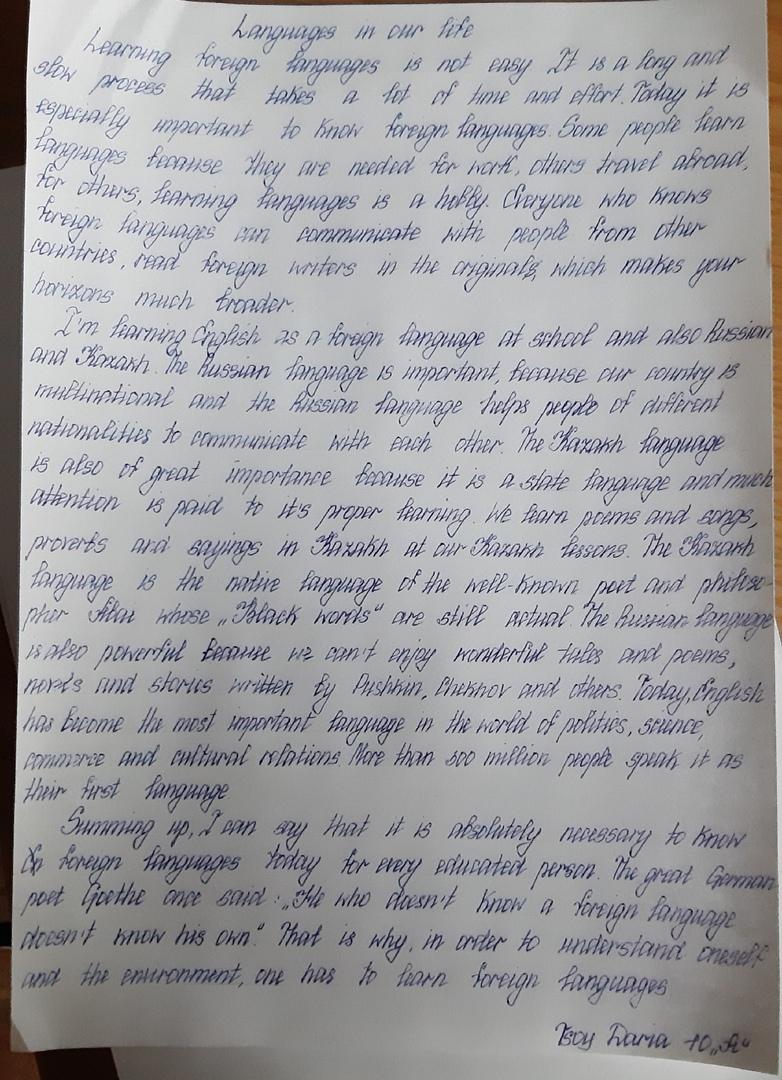 Languages in our life
Learning foreign languages is not easy It is a long and
slow process that takes a lot of time and effort. Today it is
especially important to know foreign languages. Some people learn
languages because they are needed for work, others travel abroad,
for others, learning languages is a hobby. Everyone who knows
foreign languages can communicate with people from other
countries, read foreign writers in the originals, which makes your
horizons much broader.
I'm learning English as a foreign language at school and also Russian
and Kazakh. The Russian language is important, because our country is
multinational and the Russian language helps people of different
nationalities to communicate with each other. The Kazakh language
is also of great importance because it is a state language and much
attention is paid to it's proper learning. We learn poems and songs,
proverbs and sayings in Kazakh at our Kazakh lessons. The Kazakh
language is the native language of the well-known poet and philoso-
pher Abai whose „Black words" are still actual. The Russian language
is also powerful because we can't enjoy wonderful tales and poems,
novels and stories written by Pushkin, Chekhov and others. Today, English
has become the most important language in the world of politics, science,
commerce and cultural relations More than 300 million people speak it as
their first language.
Summing up, I can say that it is absolutely necessary to know
foreign languages today for every educated person. The great German
poet Goethe once said: „He who doesn't know a foreign language
doesn't know his own". That is why, in order to understand oneself
and the environment, one has to learn foreign languages
Tsoy Daria 10 „A"